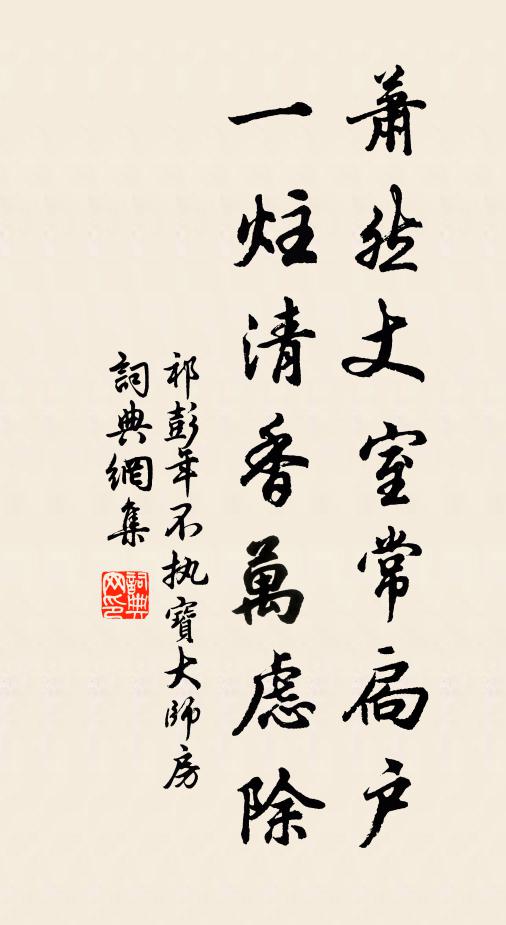 蕭然丈室常扃户
一炷清香萬慮除
祁彭年不执寶大師房
詞典網集
詞典网印